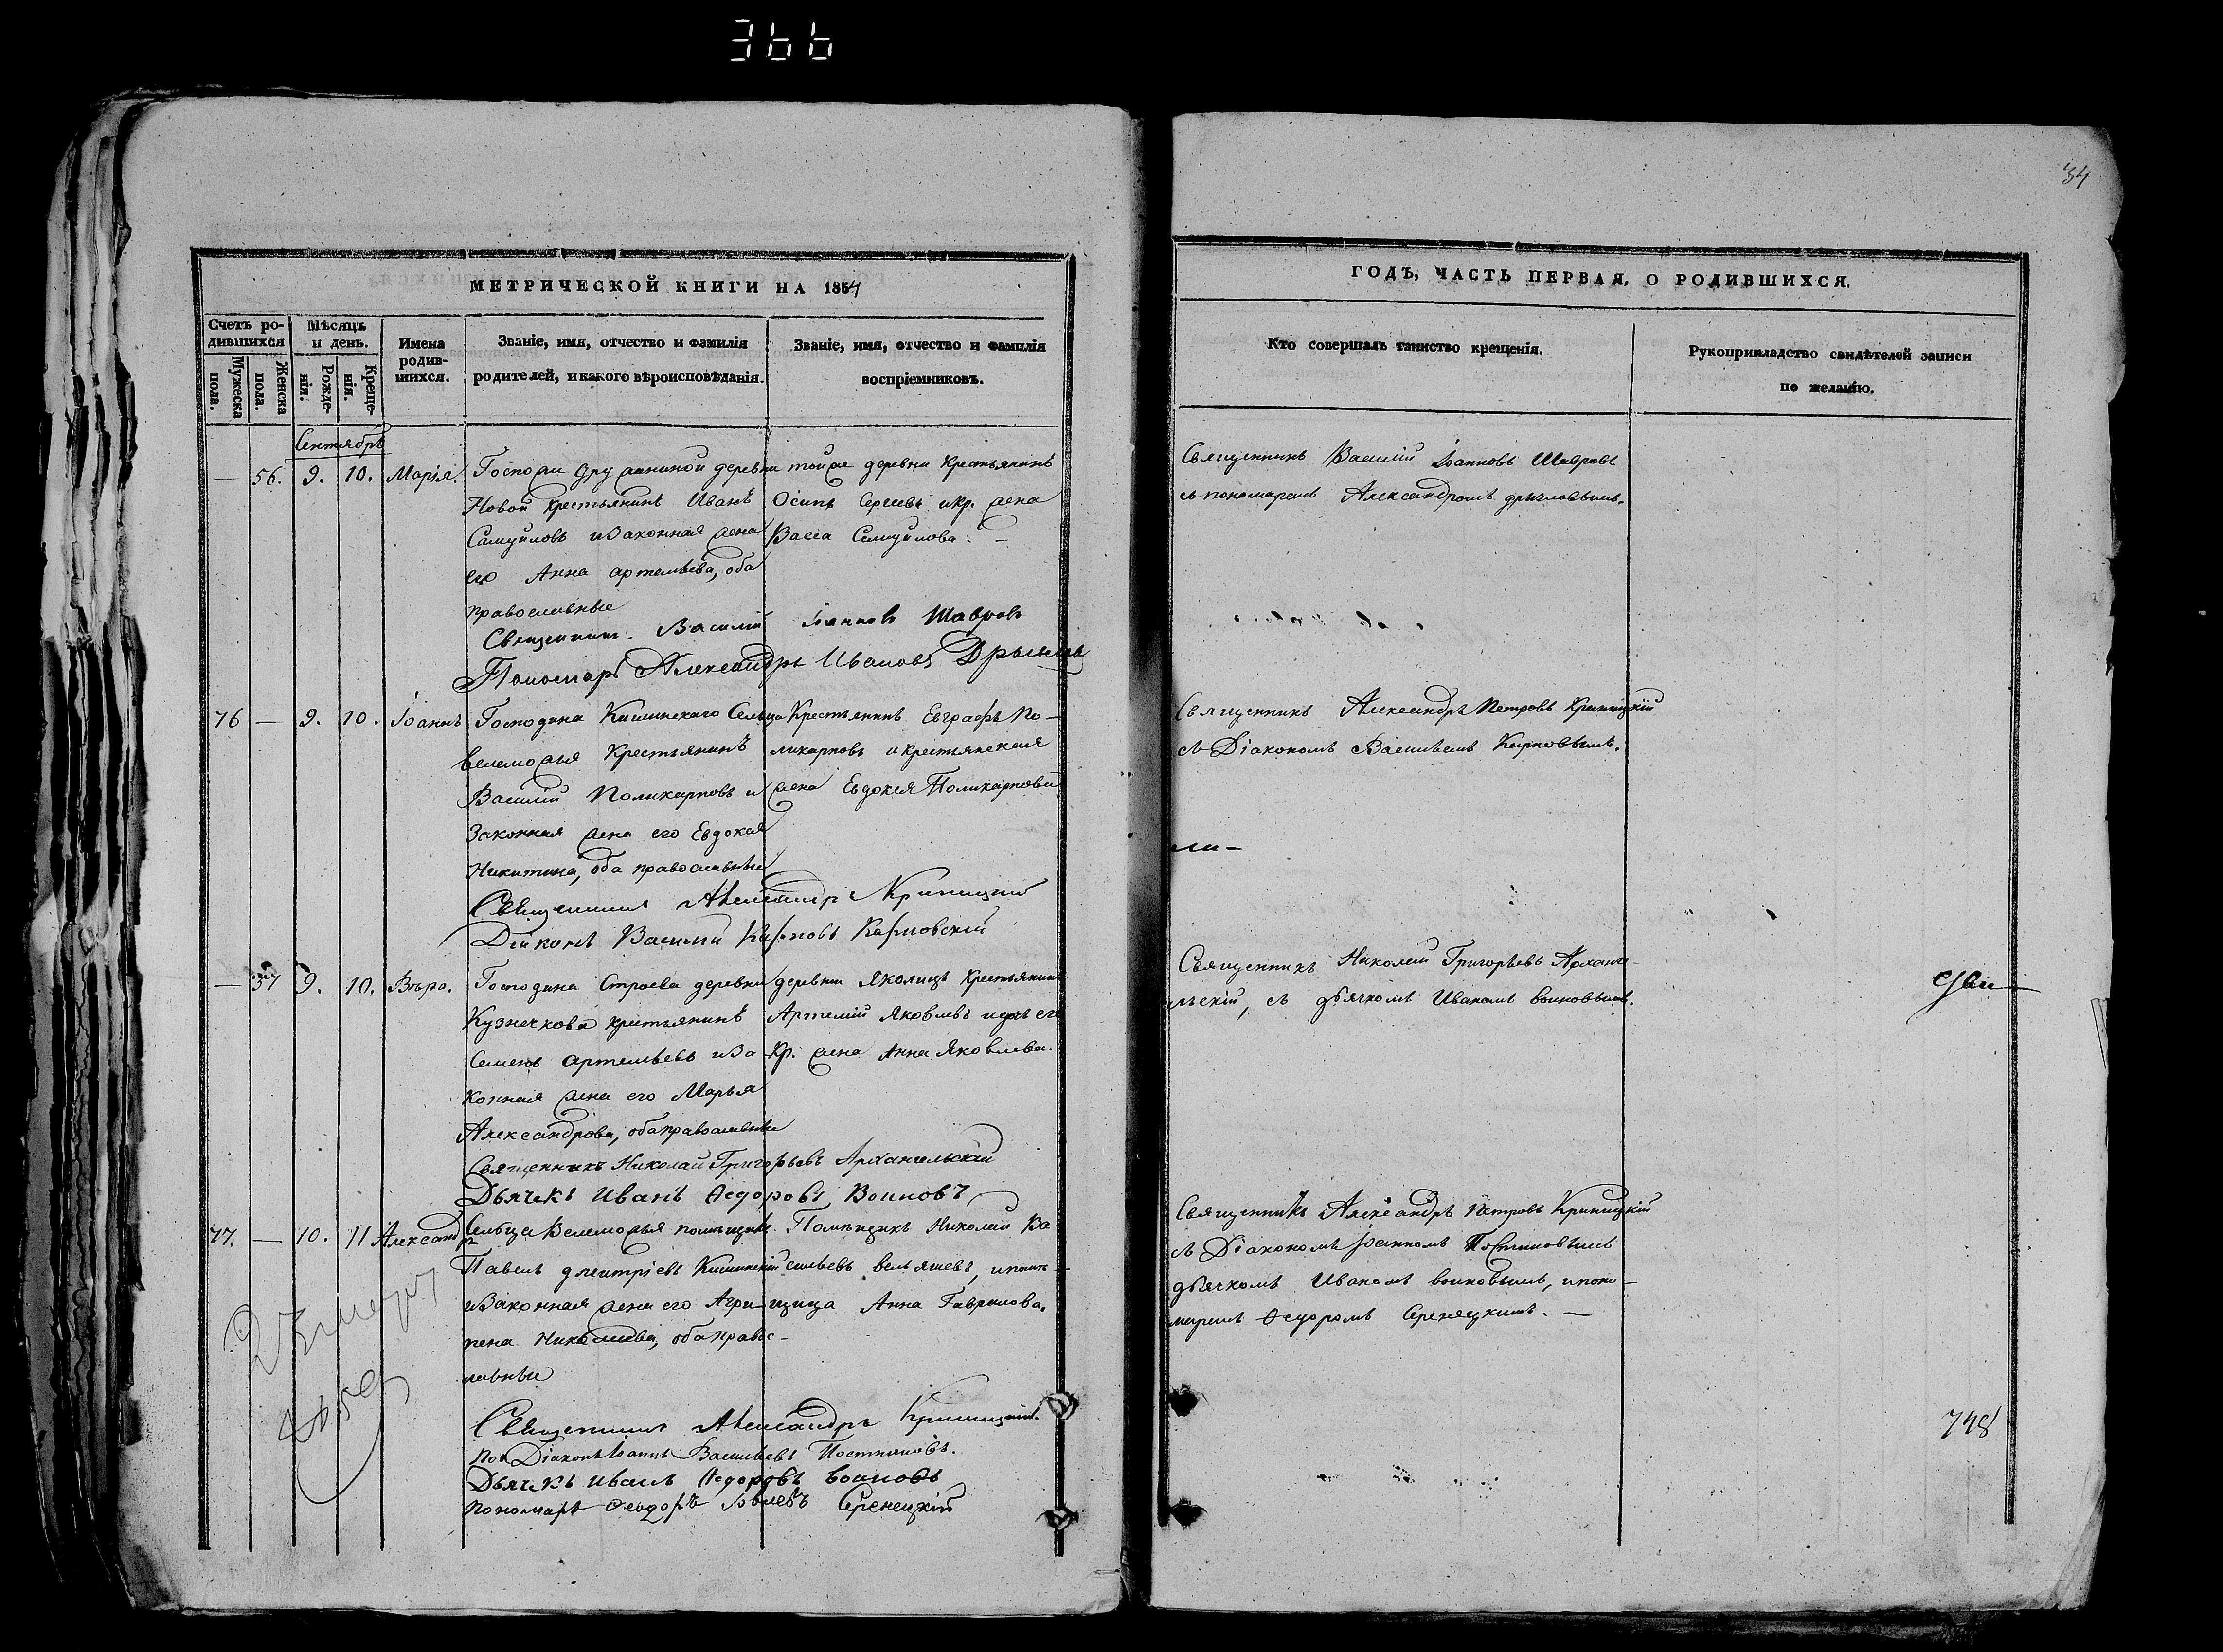 366
34
МЕТРИЧЕСКОЙ КНИГИ НА 1854
Счетъ ро-
дившихся
Мужеска
пола.
Женска
пола.
Мѣсяцъ
и день.
Рожде-
нія.
Креще-
нія.
Имена
родив-
шихся.
Званіе, имя, отчество и фамилія
родителей, и какого вѣроисповѣданія.
Званіе, имя, отчество и фамилія
воспріемниковъ.
Сентябрь
— 56. 9. 10. Марія.
Госпожи Дружининой деревни
Новой крестьянинъ Иванъ
Самуйловъ и законная жена
его Анна Артемьева, оба
православные
тойже деревни крестьянинъ
Осипъ Сергѣевъ и кр. жена
Васса Самуйлова. —
Священникъ Василій Іоанновъ Шавровъ
Пономарь Александръ Ивановъ
76 — 9. 10. Іоаннъ
Господина Кишинскаго Сельца
Велеможья Крестьянинъ
Василій Поликарповъ и
Законная жена его Евдокія
Никитина, оба православные
Крестьянинъ Евграфъ По-
ликарповъ и крестьянская
жена Евдокія Поликарпова
Священникъ Александръ Криницкій
Діаконъ Василій Карповъ Карповскій
— 57 9. 10. Вѣра.
Господина Строева деревни
Кузнечкова крестьянинъ
Семенъ Артемьевъ и за-
конная жена его Марья
Александрова, оба православные
деревни Яколицъ Крестьянинъ
Артемій Яковлевъ и
Кр. жена Анна Яковлева.
Священникъ Николай Григорьевъ Архангельскій
Дьячекъ Иванъ Ѳедоровъ Воиновъ
77. — 10. 11 Александръ
Сельца Велеможья помѣщикъ
Павелъ Дмитріевъ Кишинскій
и законная жена его Агри-
пена Николаева, оба правос-
лавные
Помѣщикъ Николай Ва-
сильевъ Вельяшевъ, и помѣ-
щица Анна Гаврилова.
Священникъ Александръ Криницкій.
Діаконъ Іоаннъ Васильевъ Постниковъ.
Дьячекъ Иванъ Ѳедоровъ Воиновъ
Пономарь Ѳеодоръ Серенецкій
ГОДЪ, ЧАСТЬ ПЕРВАЯ, О РОДИВШИХСЯ.
Кто совершалъ таинство крещенія.
Рукоприкладство свидѣтелей записи
по желанію.
Священникъ Василій Іоанновъ Шавровъ
съ пономаремъ Александромъ
Священникъ Александръ Петровъ Криницкій
съ Діакономъ Васильемъ Карповымъ.
ли-
Священникъ Николай Григорьевъ Арханге-
льскій, съ дьячкомъ Иваномъ Воиновымъ.
Священникъ Александръ Петровъ Криницкій
съ Діакономъ Іоанномъ Постниковымъ
дьячкомъ Иваномъ Воиновымъ, и поно-
маремъ Ѳедоромъ Серенецкимъ. —
748